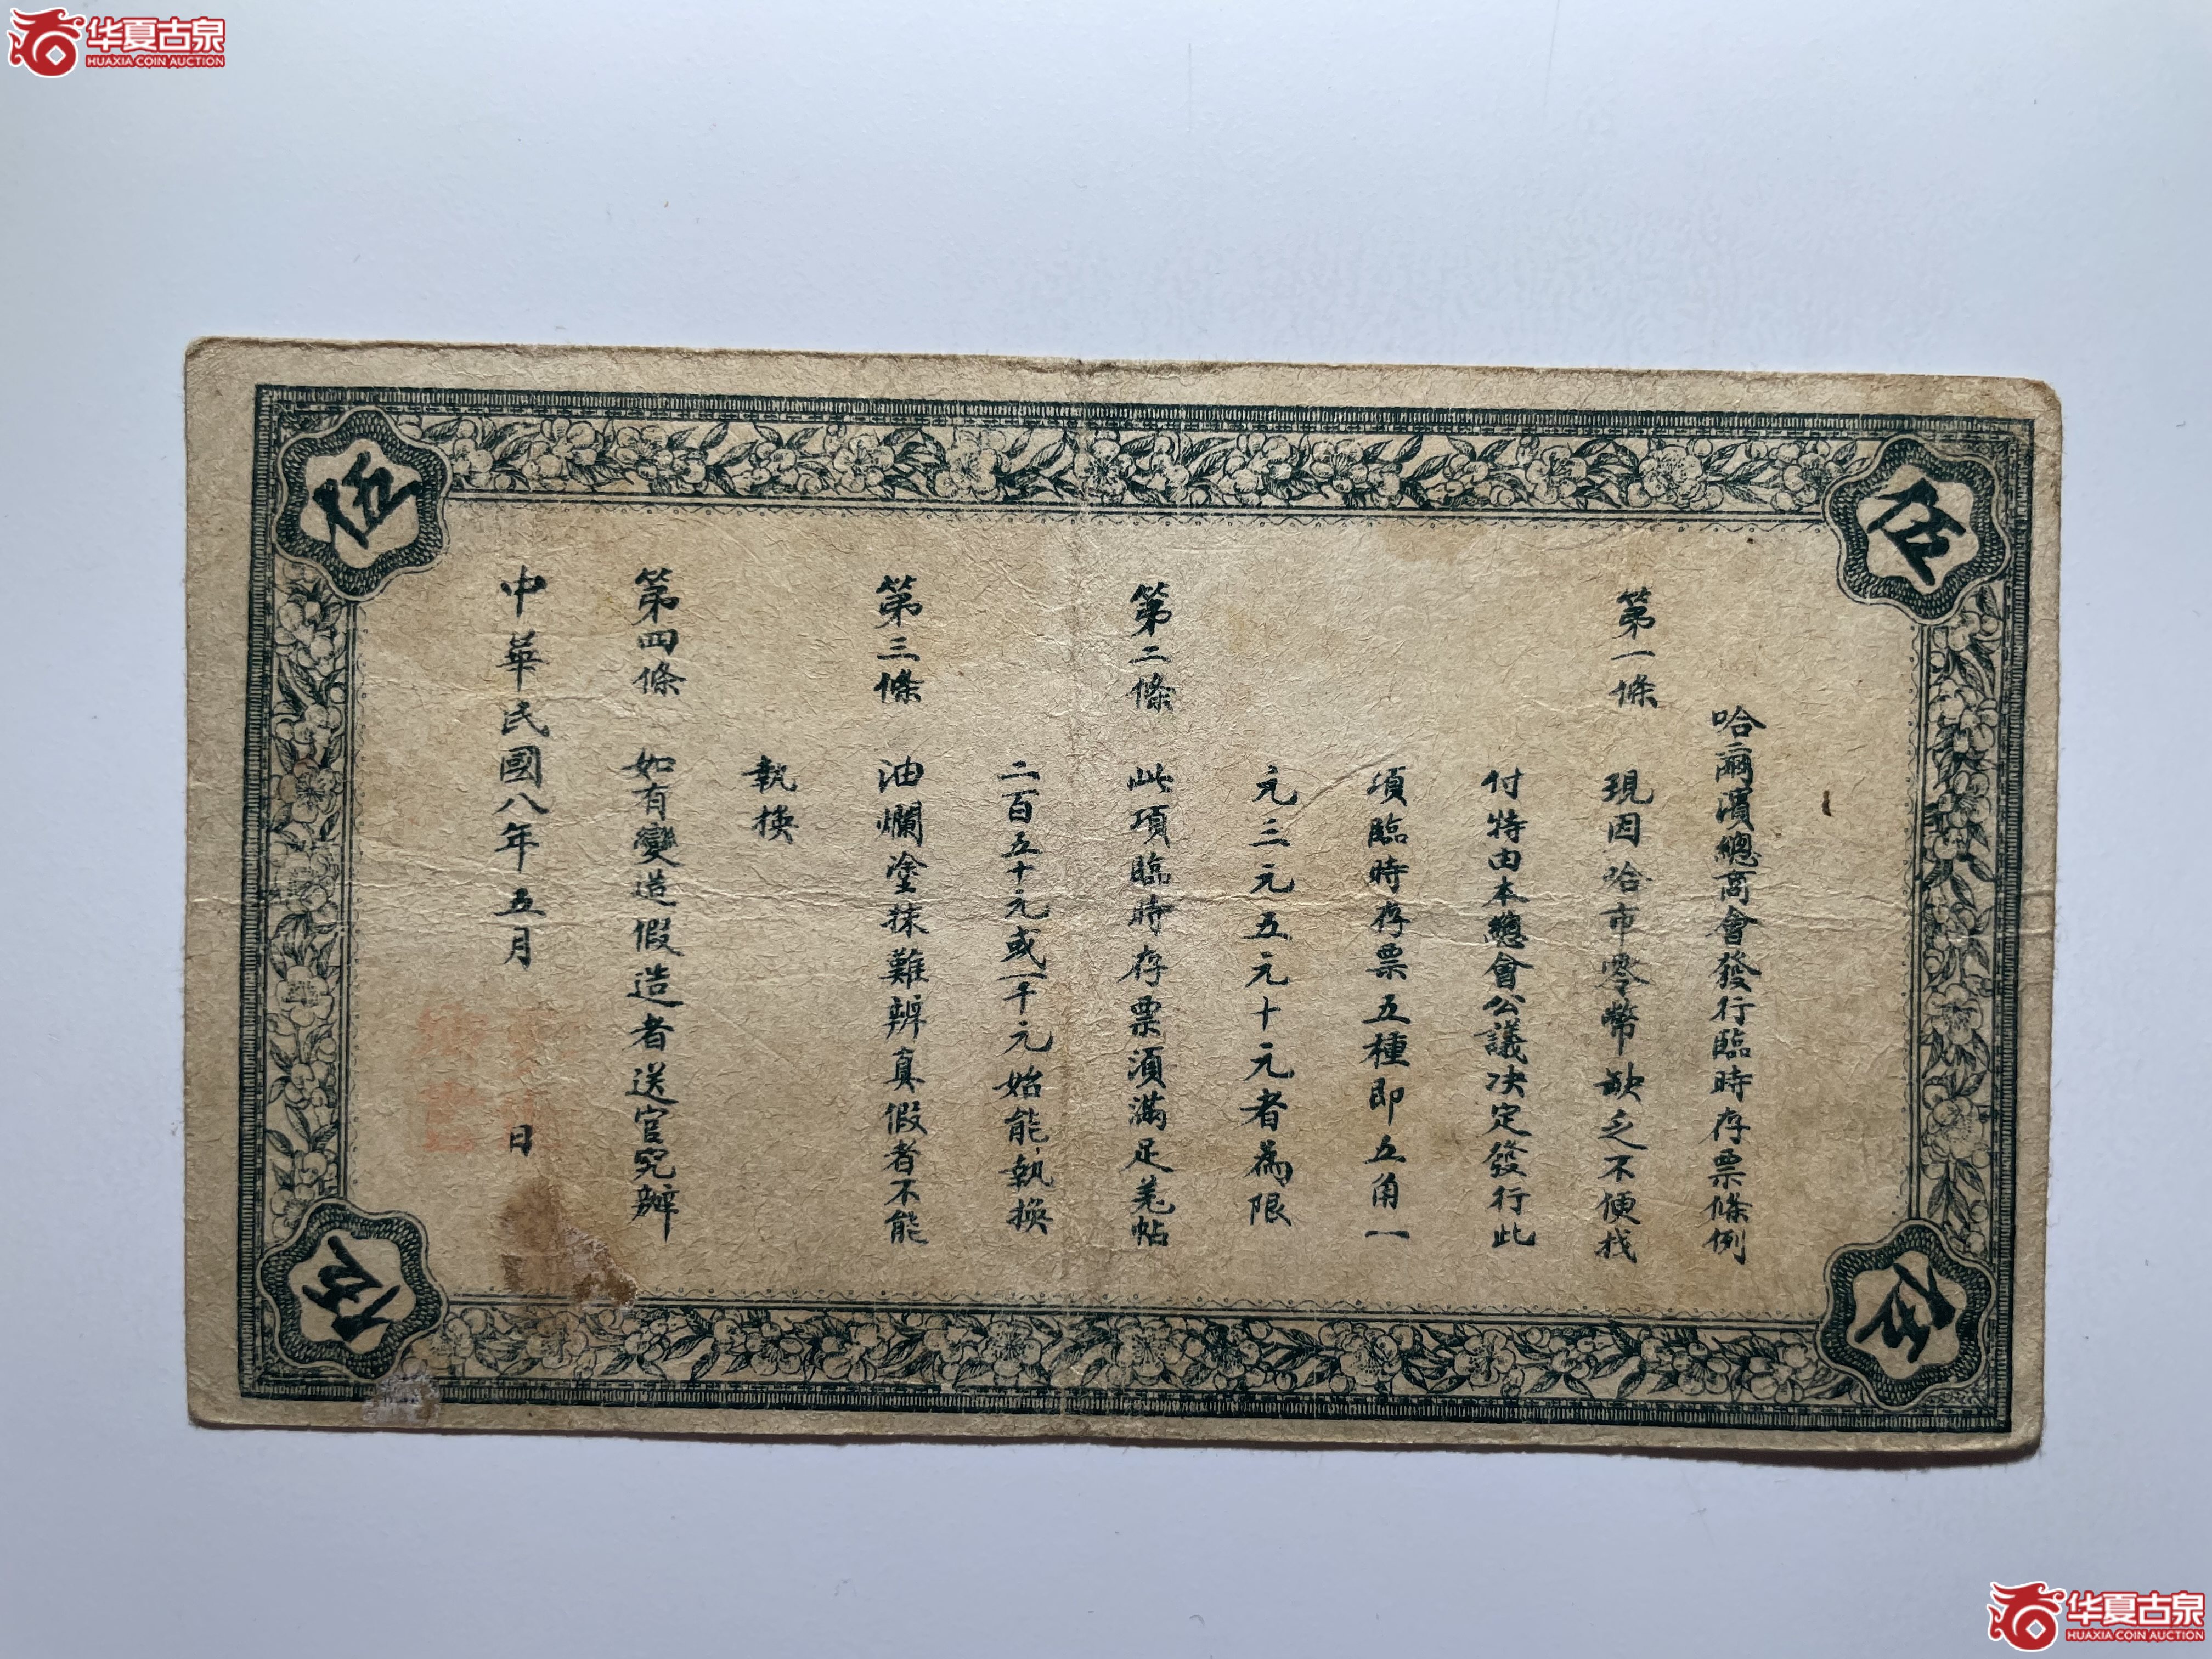 华夏古泉
HUAXIA COIN AUCTION
伍
伍
哈爾濱總商會發行臨時存票條例
第一條 現因哈市零幣缺乏不便找
付特由本總會公議决定發行此
項臨時存票五種即五角一
元三元五元十元者為限
第二條 此項臨時存票須滿足羌帖
二百五十元或一千元始能執換
第三條 油爛塗抹難辨真假者不能
執换
第四條 如有變造假造者送官究辦
中華民國八年五月 日
伍
伍
华夏古泉
HUAXIA COIN AUCTION